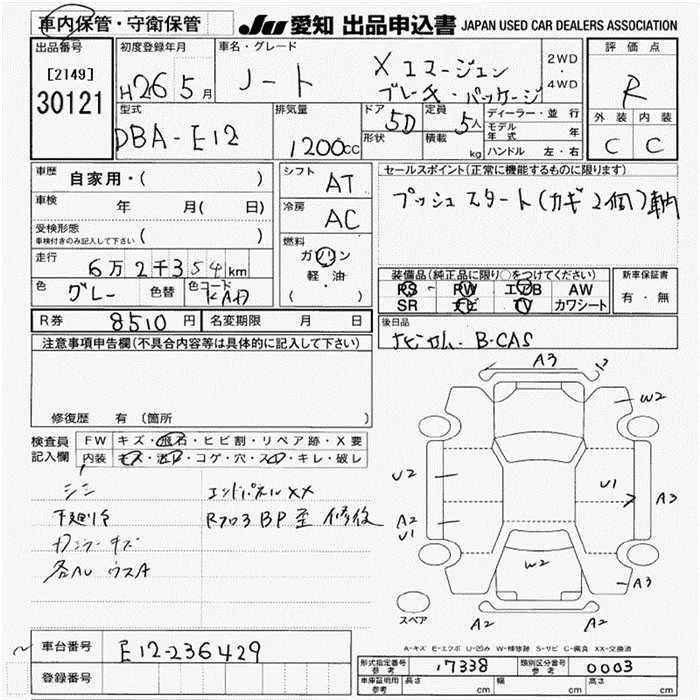 車内保管・守衛保管
JU 愛知 出品申込書 JAPAN USED CAR DEALERS ASSOCIATION
出品番号
[2149]
30121
初度登録年月
H26 5月
車名・グレード
ノート
X エマージェン
ブレーキ・パッケージ
2WD
・
4WD
評価点
R
外装 内装
C C
型式
DBA-E12
排気量
1200cc
ドア 5D
形状
定員 5人
積載 kg
ディーラー・並行
モデル年式 年
ハンドル 左・右
車歴 自家用・( )
車検 年 月( 日)
受検形態
車検付きのみ記入して下さい ( )
走行 6万2千354km
色 グレー 色替 色コード KAD
シフト AT
冷房 AC
燃料
ガソリン
軽・油
( )
セールスポイント(正常に機能するものに限ります)
プッシュスタート(カギ2個)車内
装備品(純正品に限り○をつけてください)
PS PW エアB AW
SR ナビ TV カワシート
新車保証書
有・無
後日品
B-CAS
R券 8510円 名変期限 月 日
注意事項申告欄(不具合内容等は具体的に記入して下さい)
修復歴 有 (箇所 )
検査員記入欄
FW キズ・飛石・ヒビ割・リペア跡・X要
内装 キズ・汚れ・コゲ・穴・スレ・キレ・破レ
エンドパネルXX
下廻り
修復
キズ
A3
W2
U2
U1
A3
A2
U1
W2
A3
A2
A2
スペア
A-キズ E-エクボ U-凹み W-補修跡 S-サビ C-腐食 XX-交換済
車台番号 E12-236429
登録番号
形式指定番号 参考 17338
類別区分番号 参考 0003
車庫証明用 参考 長さ cm 幅 cm 高さ cm